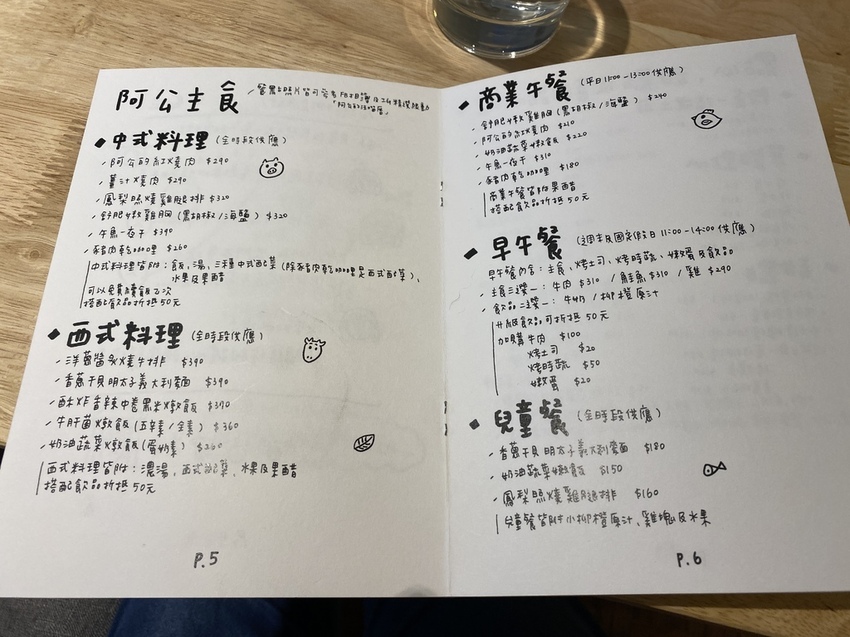 阿公主食
中式料理（全時段供應）
阿公的紅燒肉 $290
薑汁燒肉 $290
鳳梨照燒雞腿排 $320
舒肥嫩雞胸（黑胡椒/海鹽） $320
午魚一夜干 $390
豬肉乾咖哩 $260
中式料理皆附：飯、湯、三種中式配菜（除豬肉乾咖哩是西式配菜）、
水果及果醋
可以免費續飯乙次
搭配飲品折抵50元
西式料理（全時段供應）
洋蔥醬炙燒牛排 $390
香蔥干貝明太子義大利麵 $390
酥炸香辣中卷黑米燉飯 $370
牛肝菌燉飯（五辛/全素） $360
奶油蔬菜燉飯（蛋奶素） $260
西式料理皆附：濃湯、西式配菜、水果及果醋
搭配飲品折抵50元
P.5
商業午餐（平日11:00-13:00供應）
舒肥嫩雞胸（黑胡椒/海鹽） $240
阿公的紅燒肉 $210
奶油蔬菜燉飯 $220
午魚一夜干 $310
豬肉乾咖哩 $180
商業午餐皆附果醋
搭配飲品折抵50元
早午餐（週末及國定假日11:00-14:00供應）
早午餐內含：主食、烤土司、烤時蔬、嫩蛋及飲品
主食三選一：牛肉 $310 / 鮭魚 $310 / 雞 $290
飲品二選一：牛奶 / 柳橙原汁
升級飲品可折抵50元
加購牛肉 $100
烤土司 $20
烤時蔬 $50
嫩蛋 $20
兒童餐（全時段供應）
香蔥干貝明太子義大利麵 $180
奶油蔬菜燉飯 $150
鳳梨照燒雞腿排 $160
兒童餐皆附小柳橙原汁、雞塊及水果
P.6